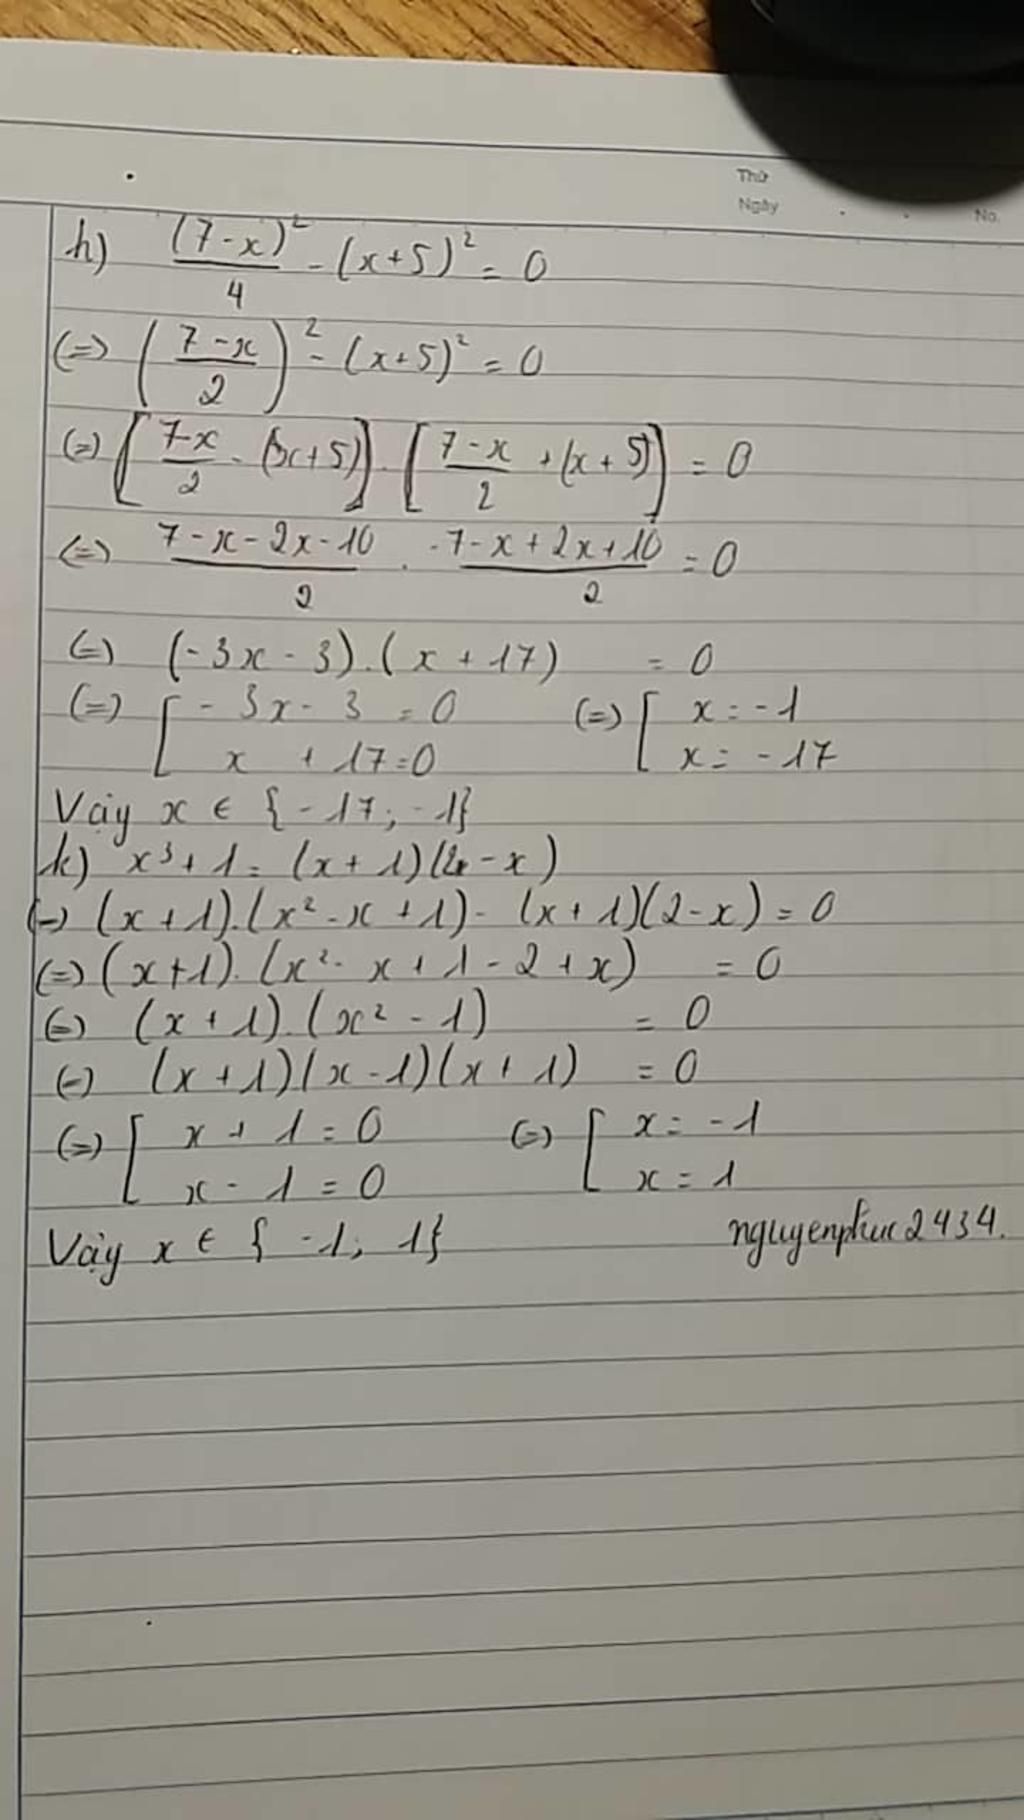 Thứ
Ngày
No.
h) (7-x)²/4 - (x+5)² = 0
(=) ((7-x)/2)² - (x+5)² = 0
(=) [(7-x)/2 - (x+5)] . [(7-x)/2 + (x+5)] = 0
(=) (7-x-2x-10)/2 . (7-x+2x+10)/2 = 0
(=) (-3x-3).(x+17) = 0
(=) [ -3x-3=0 (=) [ x=-1
x+17=0 x=-17
Vậy x ∈ {-17; -1}
k) x³+1=(x+1)(2-x)
(=) (x+1).(x²-x+1)-(x+1)(2-x)=0
(=) (x+1).(x²-x+1-2+x) = 0
(=) (x+1).(x²-1) = 0
(=) (x+1)(x-1)(x+1) = 0
(=) [ x+1=0 (=) [ x=-1
x-1=0 x=1
Vậy x ∈ {-1; 1} nguyenphuc2434.